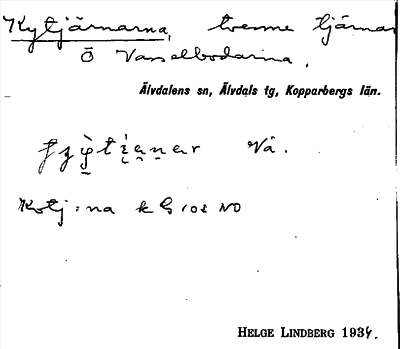 Kytjärnarna, tvenne tjärnar
Ö Vasselbodarna.
Älvdalens sn, Älvdals tg, Kopparbergs län.
Vå.
Kotj:na k G 102 NO
HELGE LINDBERG 1934.